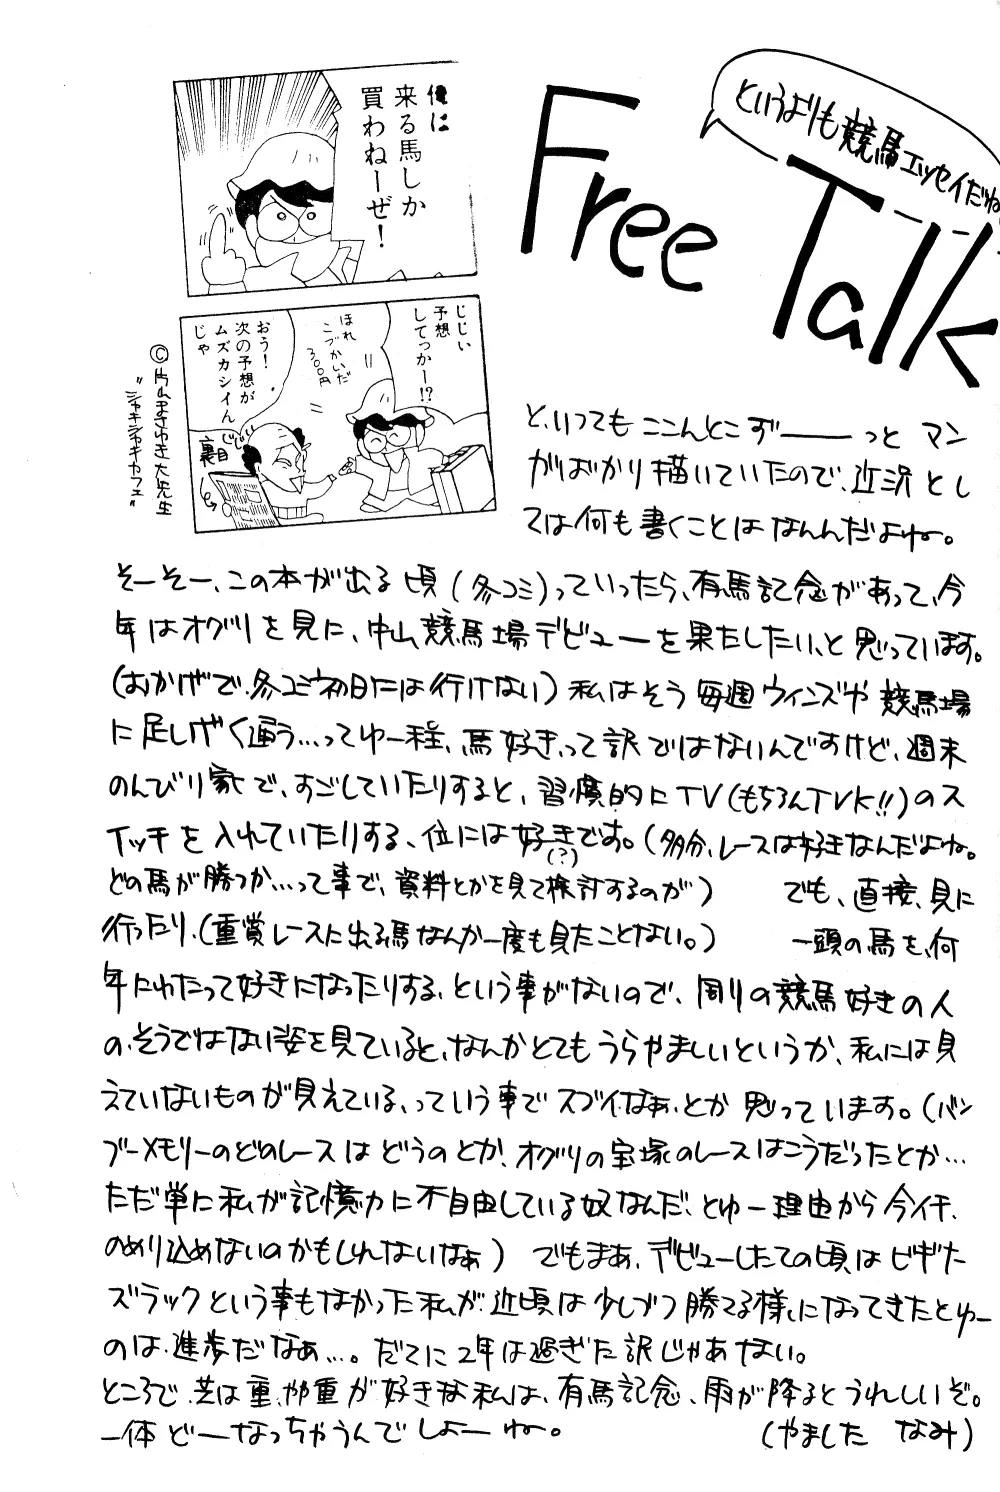 Free Talk
というよりも競馬エッセイだね
俺に
来る馬しか
買わねーぜ!
じじい
予想
してっかー!?
ほれ
こづかいだ
300円
おう!
次の予想が
ムズカシイん
じゃ
裏目
©片山まさゆき大先生
"シャキシャキカフェ"
と、いっても ここんとこず――っと マン
がばかり描いていたので、近況とし
ては何も書くことはなんんだよね。
そーそー、この本が出る頃(冬コミ)っていったら、有馬記念があって、今
年はオグリを見に、中山競馬場デビューを果たしたい、と思っています。
(おかげで、冬コミ初日には行けない) 私はそう毎週ウィンズや競馬場
に足しげく通う…ってゆー程、馬好き、って訳ではないんですけど、週末
のんびり家で、すごしていたりすると、習慣的にTV(もちろんTVK!!)のス
イッチを入れていたりする、位には好きです。(多分、レースは好きなんだよね。
(?)
どの馬が勝つか…って事で、資料とかを見て検討するのが) でも、直接、見に
行ったり、(重賞レースに出る馬なんか一度も見たことない。) 一頭の馬を、何
年にわたって好きになったりする、という事がないので、周りの競馬好きの人
の、そうではない姿を見ていると、なんかとてもうらやましいというか、私には見
えていないものが見えている、っていう事でスゴイなぁ、とか思っています。(バン
ブーメモリーのどのレースはどうのとか、オグリの宝塚のレースはこうだったとか…
ただ単に私が記憶力に不自由している奴なんだ、とゆー理由から今イチ、
のめり込めないのかもしれないなぁ) でもまぁ、デビューしたての頃はビギナ
ズラックという事もなかった私が、近頃は少しづつ勝てる様になってきたとゆー
のは、進歩だなぁ…。だてに2年は過ぎた訳じゃあない。
ところで、芝は重、や重が好きな私は、有馬記念、雨が降るとうれしいぞ。
一体どーなっちゃうんでしょーね。 (やました なみ)